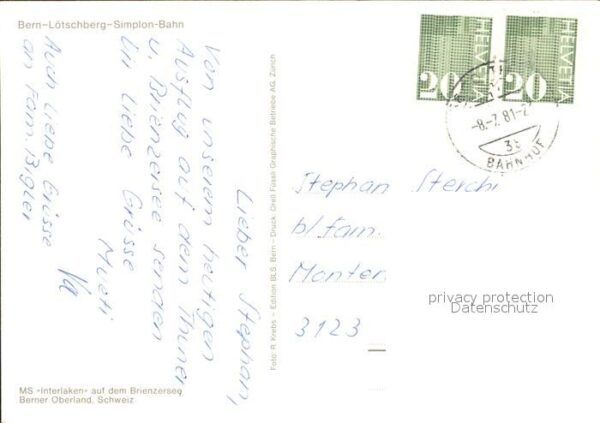 Bern–Lötschberg–Simplon-Bahn
Lieber Stephan,
Von unserem heutigen
Ausflug auf dem Thuner
u. Brienzersee senden
Dir liebe Grüsse
Mueti
Auch liebe Grüsse
an Fam. Bigler
MS «Interlaken» auf dem Brienzersee
Berner Oberland, Schweiz
Foto: R. Krebs – Edition BLS, Bern – Druck: Orell Füssli Graphische Betriebe AG, Zürich
HELVETIA
20
HELVETIA
20
-8.-7.81-2
3b
BAHNHOF
Stephan Sterchi
b/Fam.
3123
privacy protection
Datenschutz